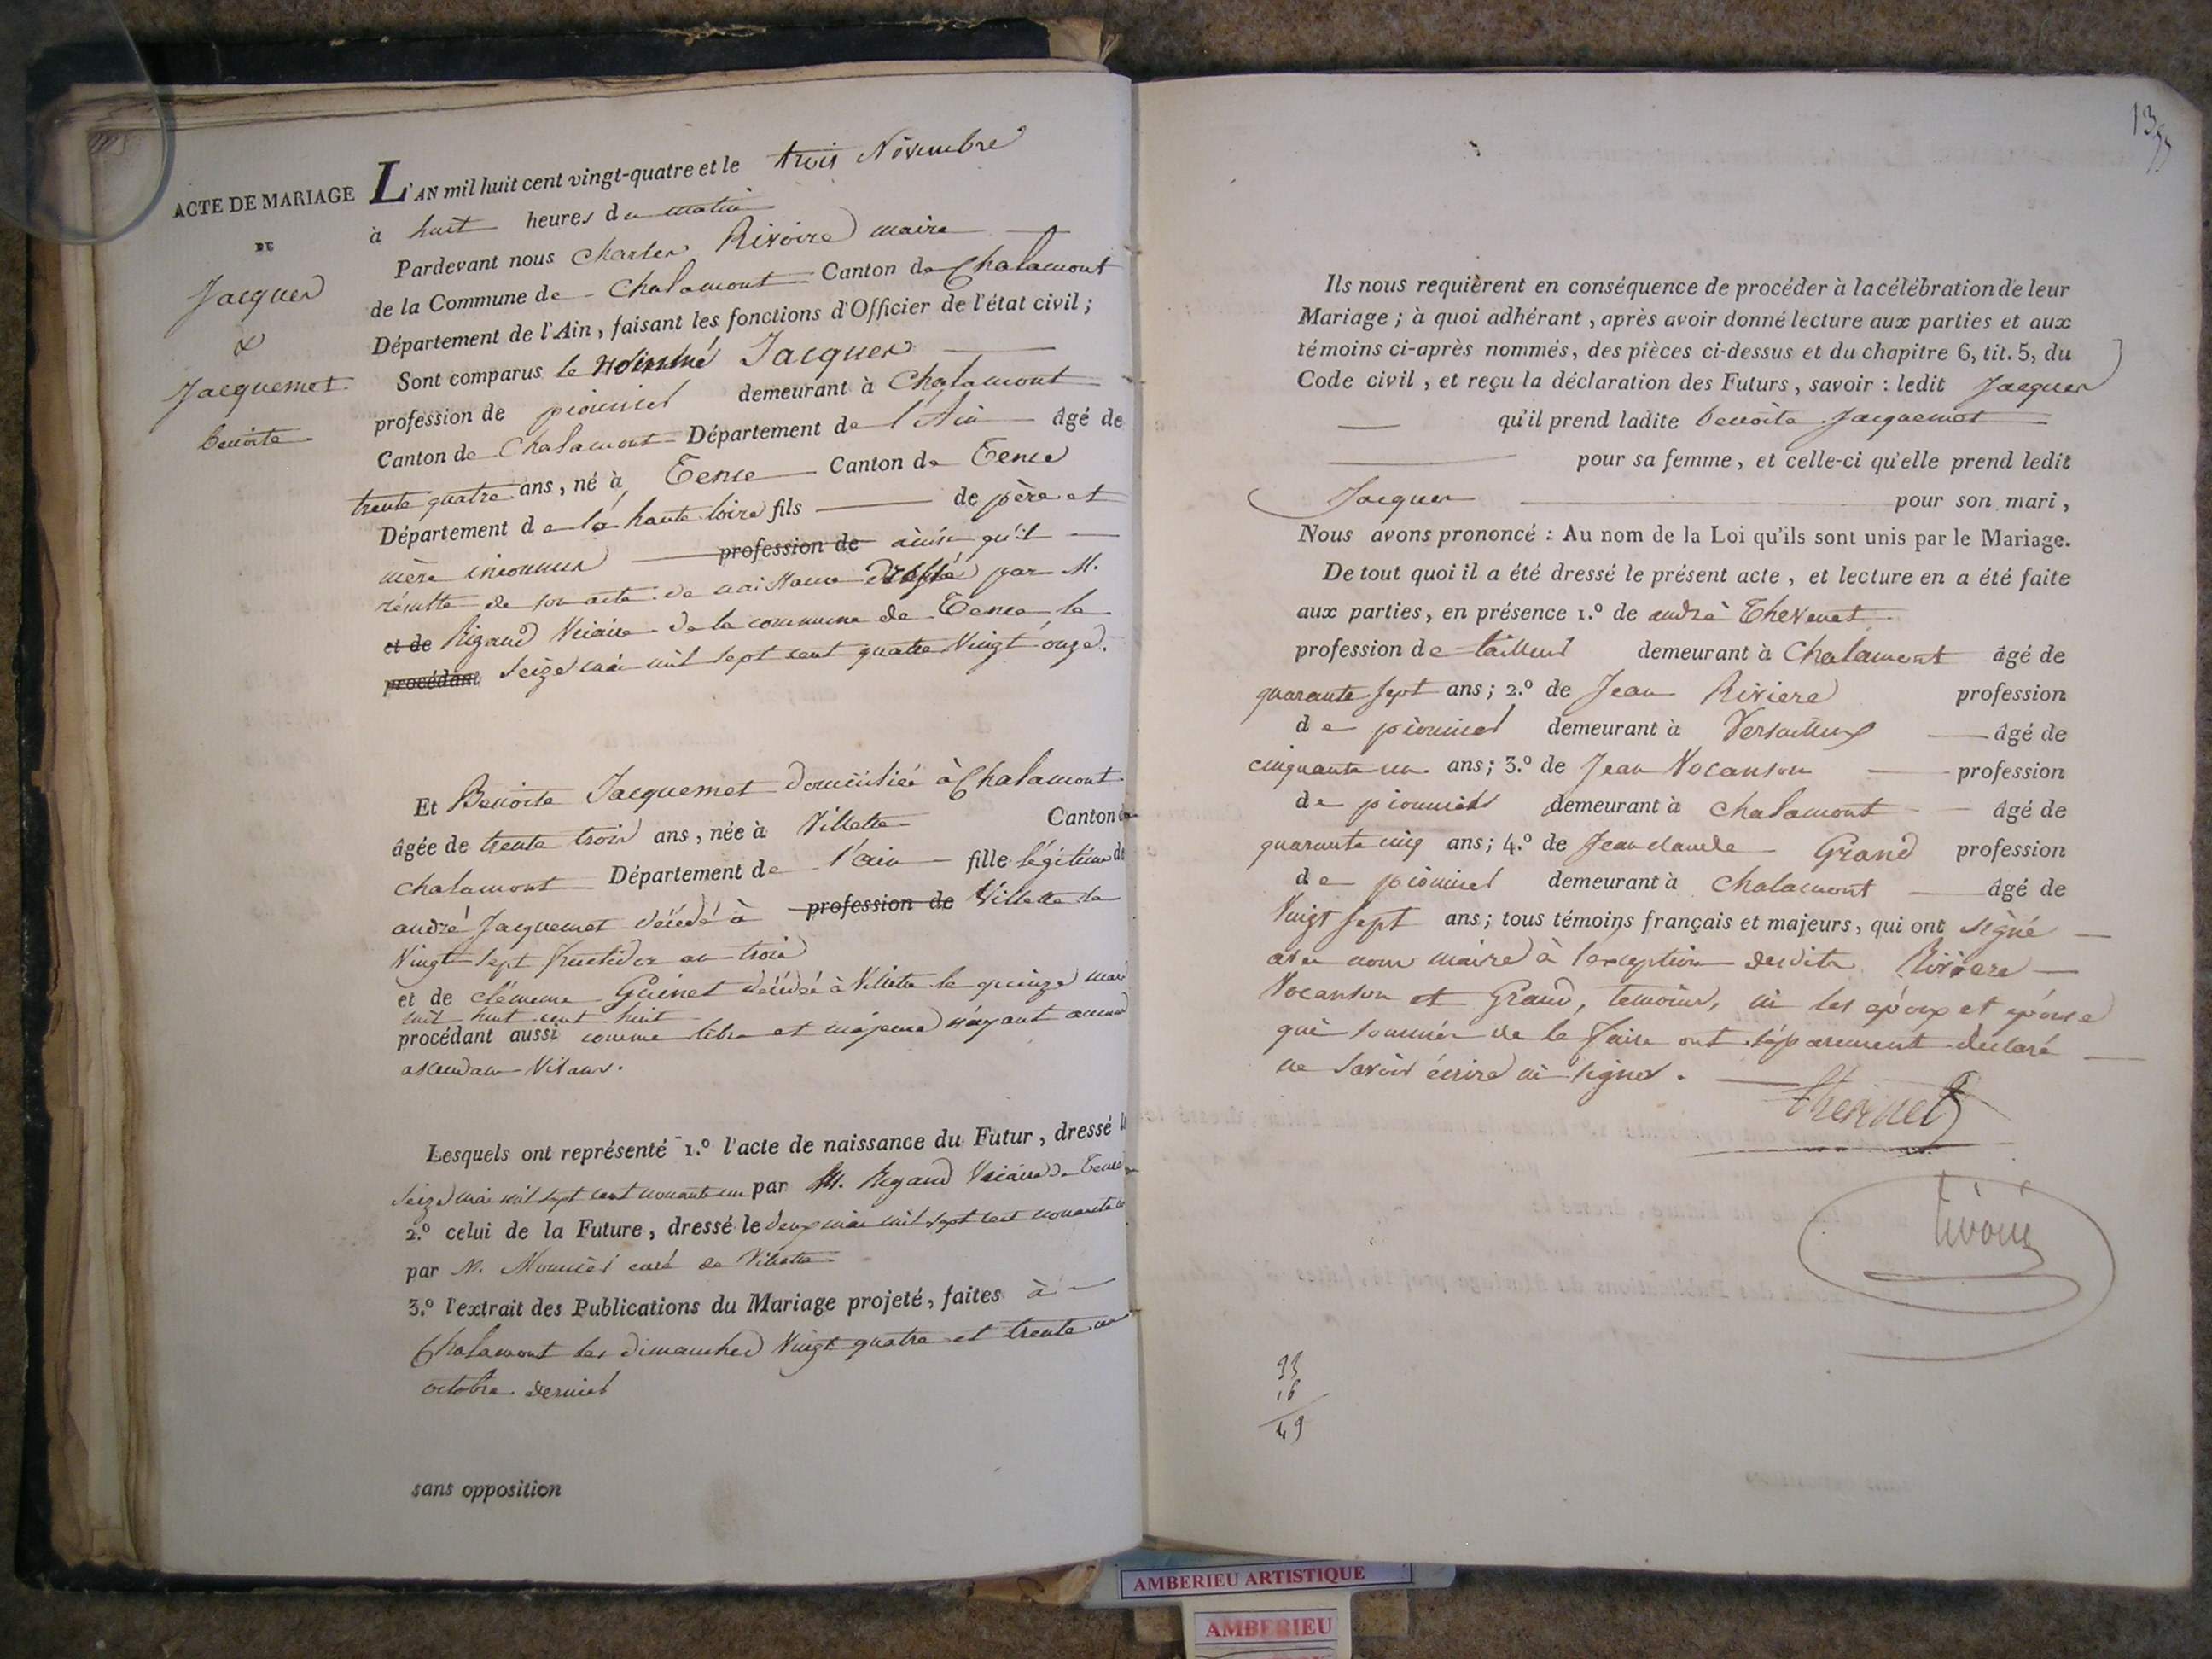 ACTE DE MARIAGE
DE
Jacques
&
Jacquemet
benoite
L'AN mil huit cent vingt-quatre et le trois Novembre
à huit heures du matin
Pardevant nous Charles Rivoire maire
de la Commune de Chalamont Canton de Chalamont
Département de l'Ain, faisant les fonctions d'Officier de l'état civil;
Sont comparus le nommé Jacques
profession de pionnier demeurant à Chalamont
Canton de Chalamont Département de l'Ain âgé de
trente quatre ans, né à Tence Canton de Tence
Département de la haute loire fils de père et
mère inconnus profession de ainsi qu'il
résulte de son acte de naissance dressé par M.
et de Rigaud Vicaire de la commune de Tence le
procédant seize mai mil sept cent quatre Vingt onze.
Et Benoite Jacquemet domiciliée à Chalamont
âgée de trente trois ans, née à Villette Canton de
chalamont Département de l'ain fille légitime de
andré Jacquemet décédé à profession de Villette le
Vingt sept fructidor an trois
et de clémence Guinet décédée à Villette le quinze mars
mil huit cent huit
procédant aussi comme libre et majeure n'ayant aucun
ascendans Vivans.
Lesquels ont représenté 1.° l'acte de naissance du Futur, dressé le
seize mai mil sept cent nonante un par M. Rigaud Vicaire de Tence
2.° celui de la Future, dressé le deux mai mil sept cent nonante un
par M. Monnier curé de Villette
3.° l'extrait des Publications du Mariage projeté, faites à
Chalamont les dimanches Vingt quatre et trente un
octobre dernier
sans opposition
13
Ils nous requièrent en conséquence de procéder à la célébration de leur
Mariage; à quoi adhérant, après avoir donné lecture aux parties et aux
témoins ci-après nommés, des pièces ci-dessus et du chapitre 6, tit. 5, du
Code civil, et reçu la déclaration des Futurs, savoir: ledit Jacques
qu'il prend ladite benoite Jacquemet
pour sa femme, et celle-ci qu'elle prend ledit
Jacques pour son mari,
Nous avons prononcé: Au nom de la Loi qu'ils sont unis par le Mariage.
De tout quoi il a été dressé le présent acte, et lecture en a été faite
aux parties, en présence 1.° de andré Thevenet
profession de tailleur demeurant à Chalamont âgé de
quarante sept ans; 2.° de Jean Riviere profession
de pionnier demeurant à Versailleux âgé de
cinquante un ans; 3.° de Jean Vocanson profession
de pionnier demeurant à chalamont âgé de
quarante cinq ans; 4.° de Jean claude Grand profession
de pionnier demeurant à chalamont âgé de
Vingt sept ans; tous témoins français et majeurs, qui ont signé
avec nous maire à l'exception desdits Riviere
Vocanson et Grand, temoins, ni les epoux et epouse
qui sommés de le faire ont séparement declaré
ne savoir écrire ni signer.
thevenet
rivoire
33
16
49
AMBERIEU ARTISTIQUE
AMBERIEU